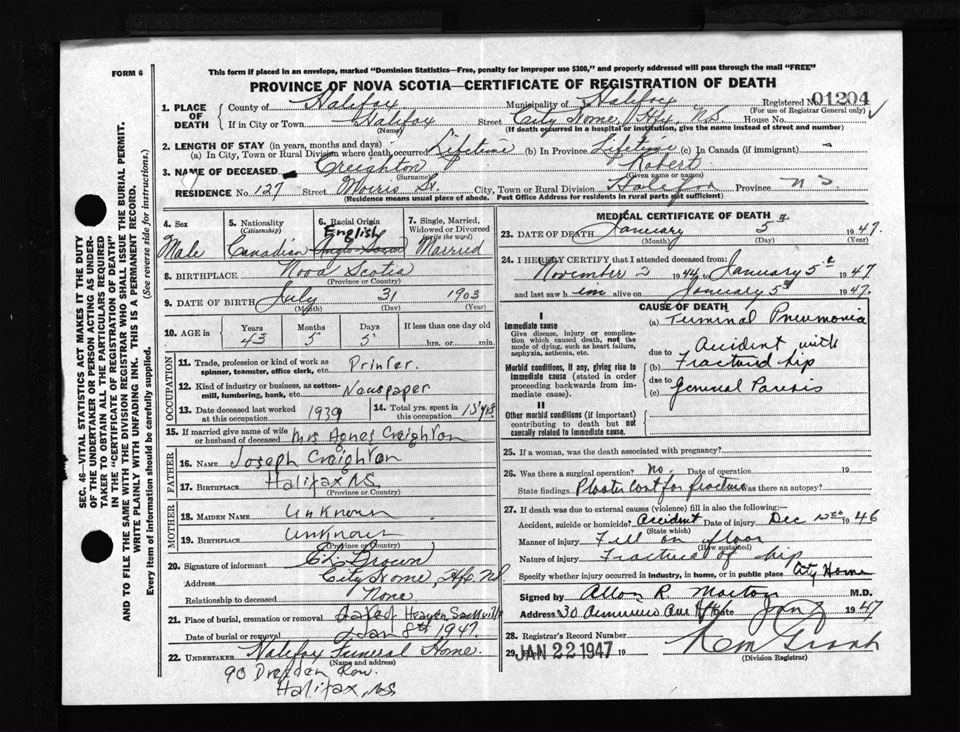 FORM 6
This form if placed in an envelope, marked "Dominion Statistics—Free, penalty for improper use $300," and properly addressed will pass through the mail "FREE"
PROVINCE OF NOVA SCOTIA—CERTIFICATE OF REGISTRATION OF DEATH
1. PLACE OF DEATH { County of Halifax Municipality of Halifax Registered No. 01204
(For use of Registrar General only)
If in City or Town Halifax Street City Home, Hfx, N.S. House No.
(Name) (If death occurred in a hospital or institution, give the name instead of street and number)
2. LENGTH OF STAY (in years, months and days)
(a) In City, Town or Rural Division where death occurred Lifetime (b) In Province Lifetime (c) In Canada (if immigrant) -
3. NAME OF DECEASED Creighton Robert
(Surname) (Given name or names)
RESIDENCE No. 127 Street Morris St. City, Town or Rural Division Halifax Province N S
(Residence means usual place of abode. Post Office Address for residents in rural parts not sufficient)
4. Sex Male
5. Nationality (Citizenship) Canadian
6. Racial Origin English
7. Single, Married, Widowed or Divorced (write the word) Married
8. BIRTHPLACE Nova Scotia
(Province or Country)
9. DATE OF BIRTH July 31 1903
(Month) (Day) (Year)
10. AGE in Years 43 Months 5 Days 5 If less than one day
hrs. or min.
OCCUPATION
11. Trade, profession or kind of work as spinner, teamster, office clerk, etc. Printer.
12. Kind of industry or business, as cotton-mill, lumbering, bank, etc. Newspaper
13. Date deceased last worked at this occupation 1939
14. Total yrs. spent in this occupation 15 yrs.
15. If married give name of wife or husband of deceased Mrs Agnes Creighton
FATHER
16. NAME Joseph Creighton
17. BIRTHPLACE Halifax N.S.
(Province or Country)
MOTHER
18. MAIDEN NAME Unknown
19. BIRTHPLACE Unknown
(Province or Country)
20. Signature of informant Brown
Address City Home, Hfx. NS
Relationship to deceased None
21. Place of burial, cremation or removal Heaven, Sackville
Date of burial or removal Jan 8th 1947.
22. UNDERTAKER Halifax Funeral Home.
(Name and address)
90 Dresden Row.
Halifax, NS
MEDICAL CERTIFICATE OF DEATH
23. DATE OF DEATH January 5 1947.
(Month) (Day) (Year)
24. I HEREBY CERTIFY that I attended deceased from:
November 2 1944 to January 5th 1947
and last saw him alive on January 5th 1947.
CAUSE OF DEATH
I
Immediate cause
Give disease, injury or complication which caused death, not the mode of dying, such as heart failure, asphyxia, asthenia, etc.
(a) Terminal Pneumonia
due to Accident with
(b) Fractured hip
Morbid conditions, if any, giving rise to immediate cause (stated in order proceeding backwards from immediate cause).
due to
(c) General Paresis
II
Other morbid conditions (if important) contributing to death but not causally related to immediate cause.
25. If a woman, was the death associated with pregnancy?
26. Was there a surgical operation? No. Date of operation 19
State findings Plaster Cast for fracture Was there an autopsy?
27. If death was due to external causes (violence) fill in also the following:—
Accident, suicide or homicide? Accident Date of injury Dec 12th 1946
(State which)
Manner of injury Fell on floor
(How sustained)
Nature of injury Fracture of hip
Specify whether injury occurred in industry, in home, or in public place City Home
Signed by Allan R. Morton M.D.
Address 30 Ave Hfx Date Jan 8 1947
28. Registrar's Record Number
29. JAN 22 1947 19
(Division Registrar)
SEC. 46—VITAL STATISTICS ACT MAKES IT THE DUTY OF THE UNDERTAKER OR PERSON ACTING AS UNDERTAKER TO OBTAIN ALL THE PARTICULARS REQUIRED IN THE "CERTIFICATE OF REGISTRATION OF DEATH" AND TO FILE THE SAME WITH THE DIVISION REGISTRAR WHO SHALL ISSUE THE BURIAL PERMIT.
WRITE PLAINLY WITH UNFADING INK. THIS IS A PERMANENT RECORD.
Every item of information should be carefully supplied. (See reverse side for instructions.)